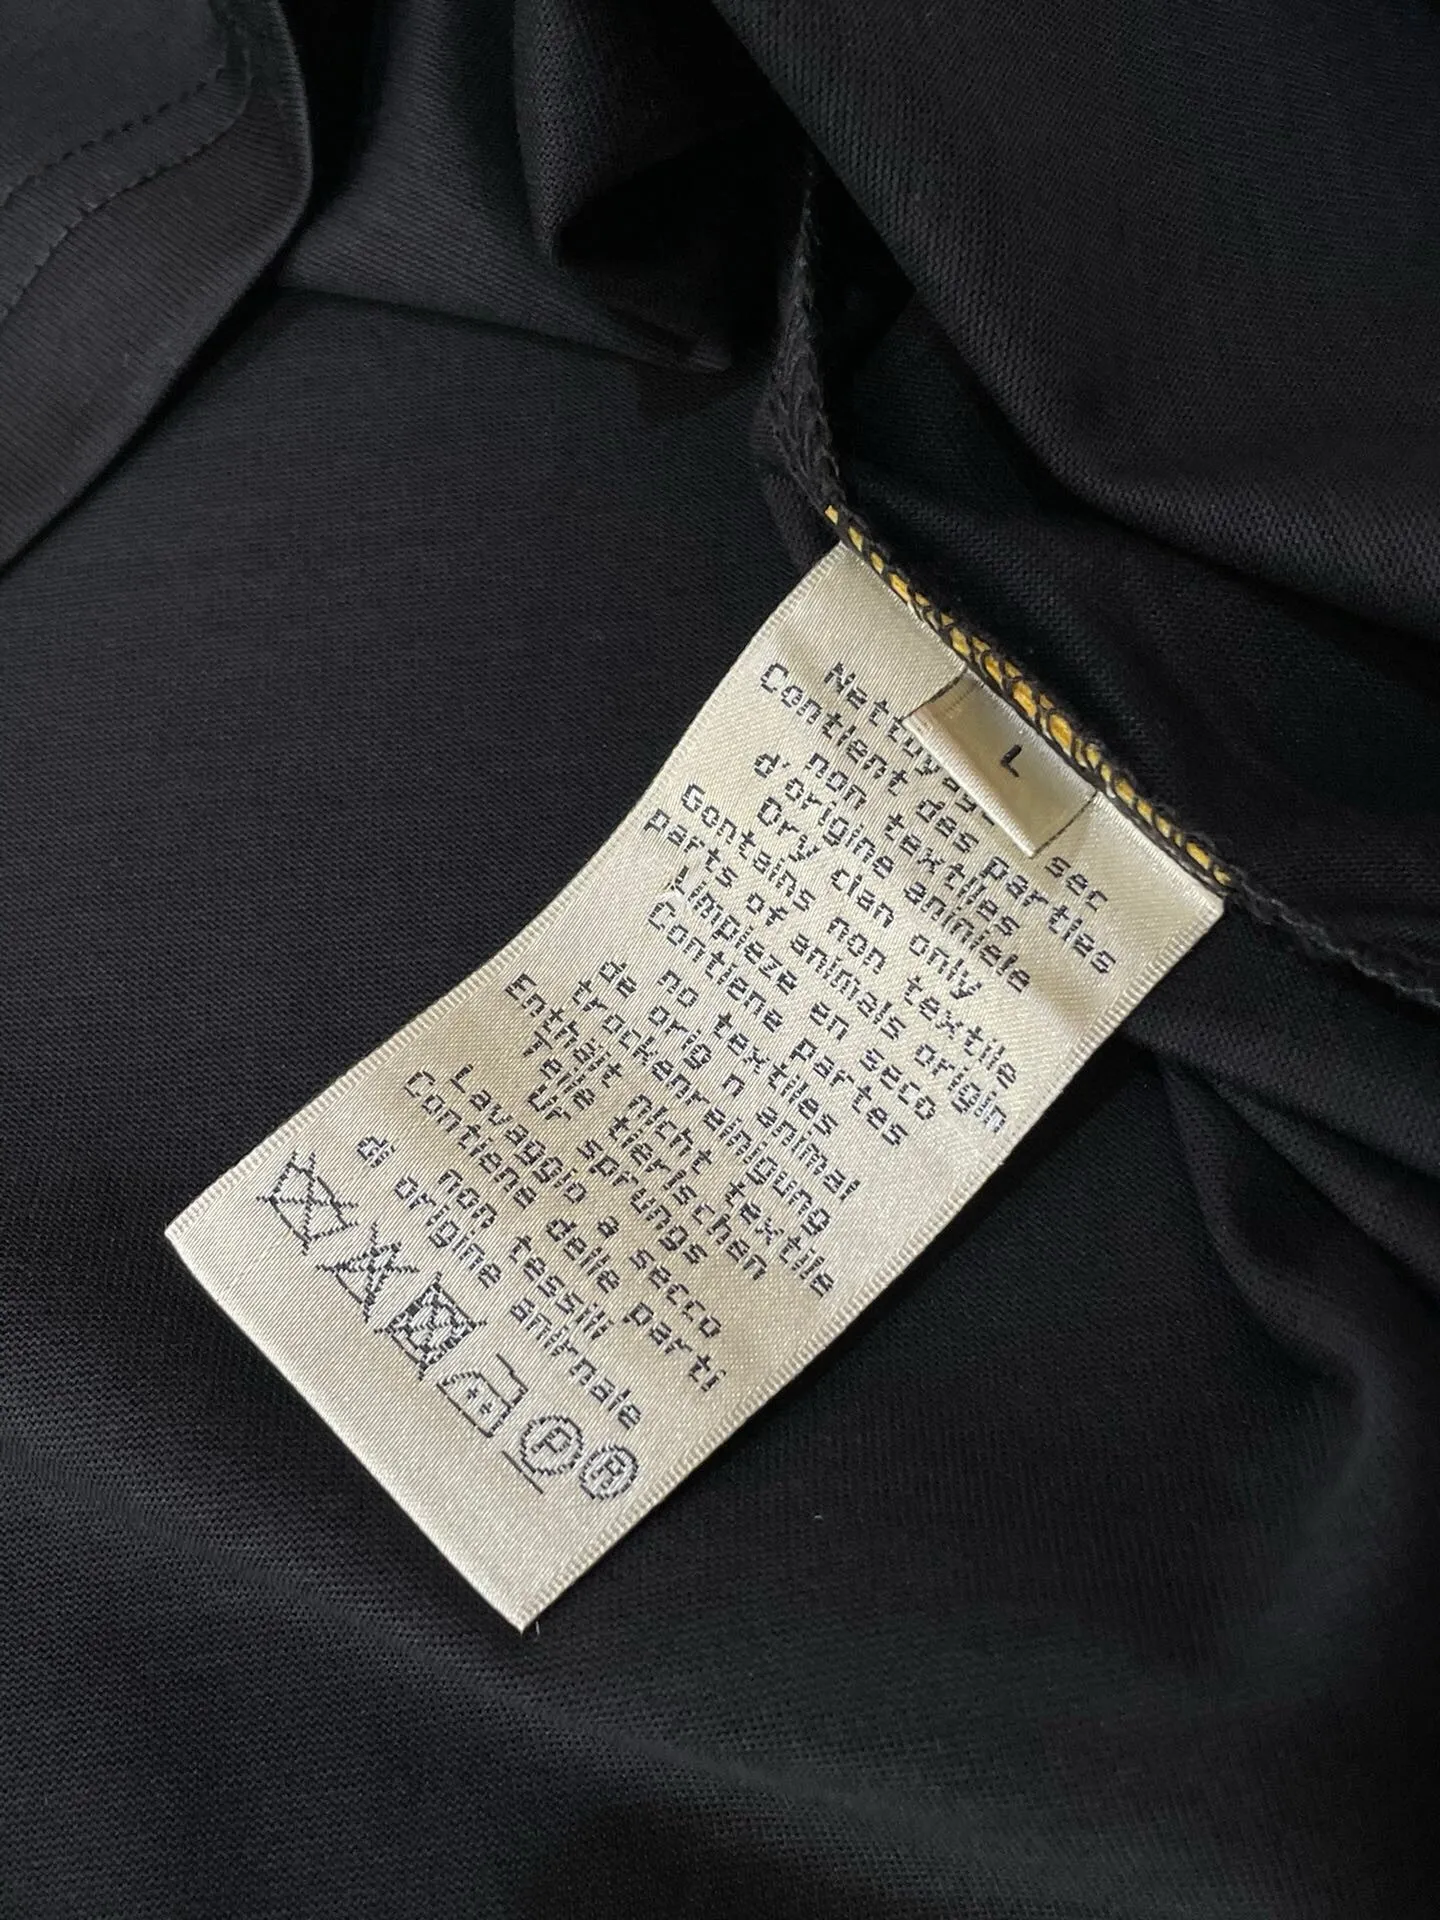 L
Nettoyage sec
Contient des parties
non textiles
d'origine aniniele
Dry clan only
Gontains non textile
parts of animals origin
Limpieze en seco
Contiene partes
no textiles
de orig n animal
trockenreinigung
Enthait nicht textile
Teile tierischen
Ur sprungs
Lavaggio a secco
Contiene delle parti
non tessili
di origine anirnale
P R